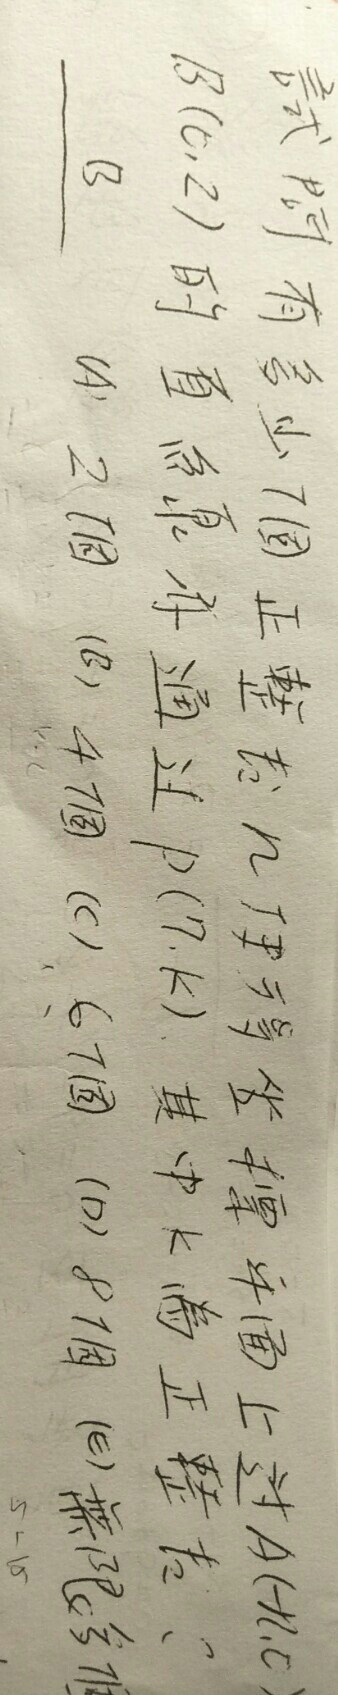 試問有多少個正整數n使得坐標平面上過A(-n,0)
B(0,2)的直線亦通過P(7,k),其中k為正整數?
B (A) 2個 (B) 4個 (C) 6個 (D) 8個 (E) 無限多個